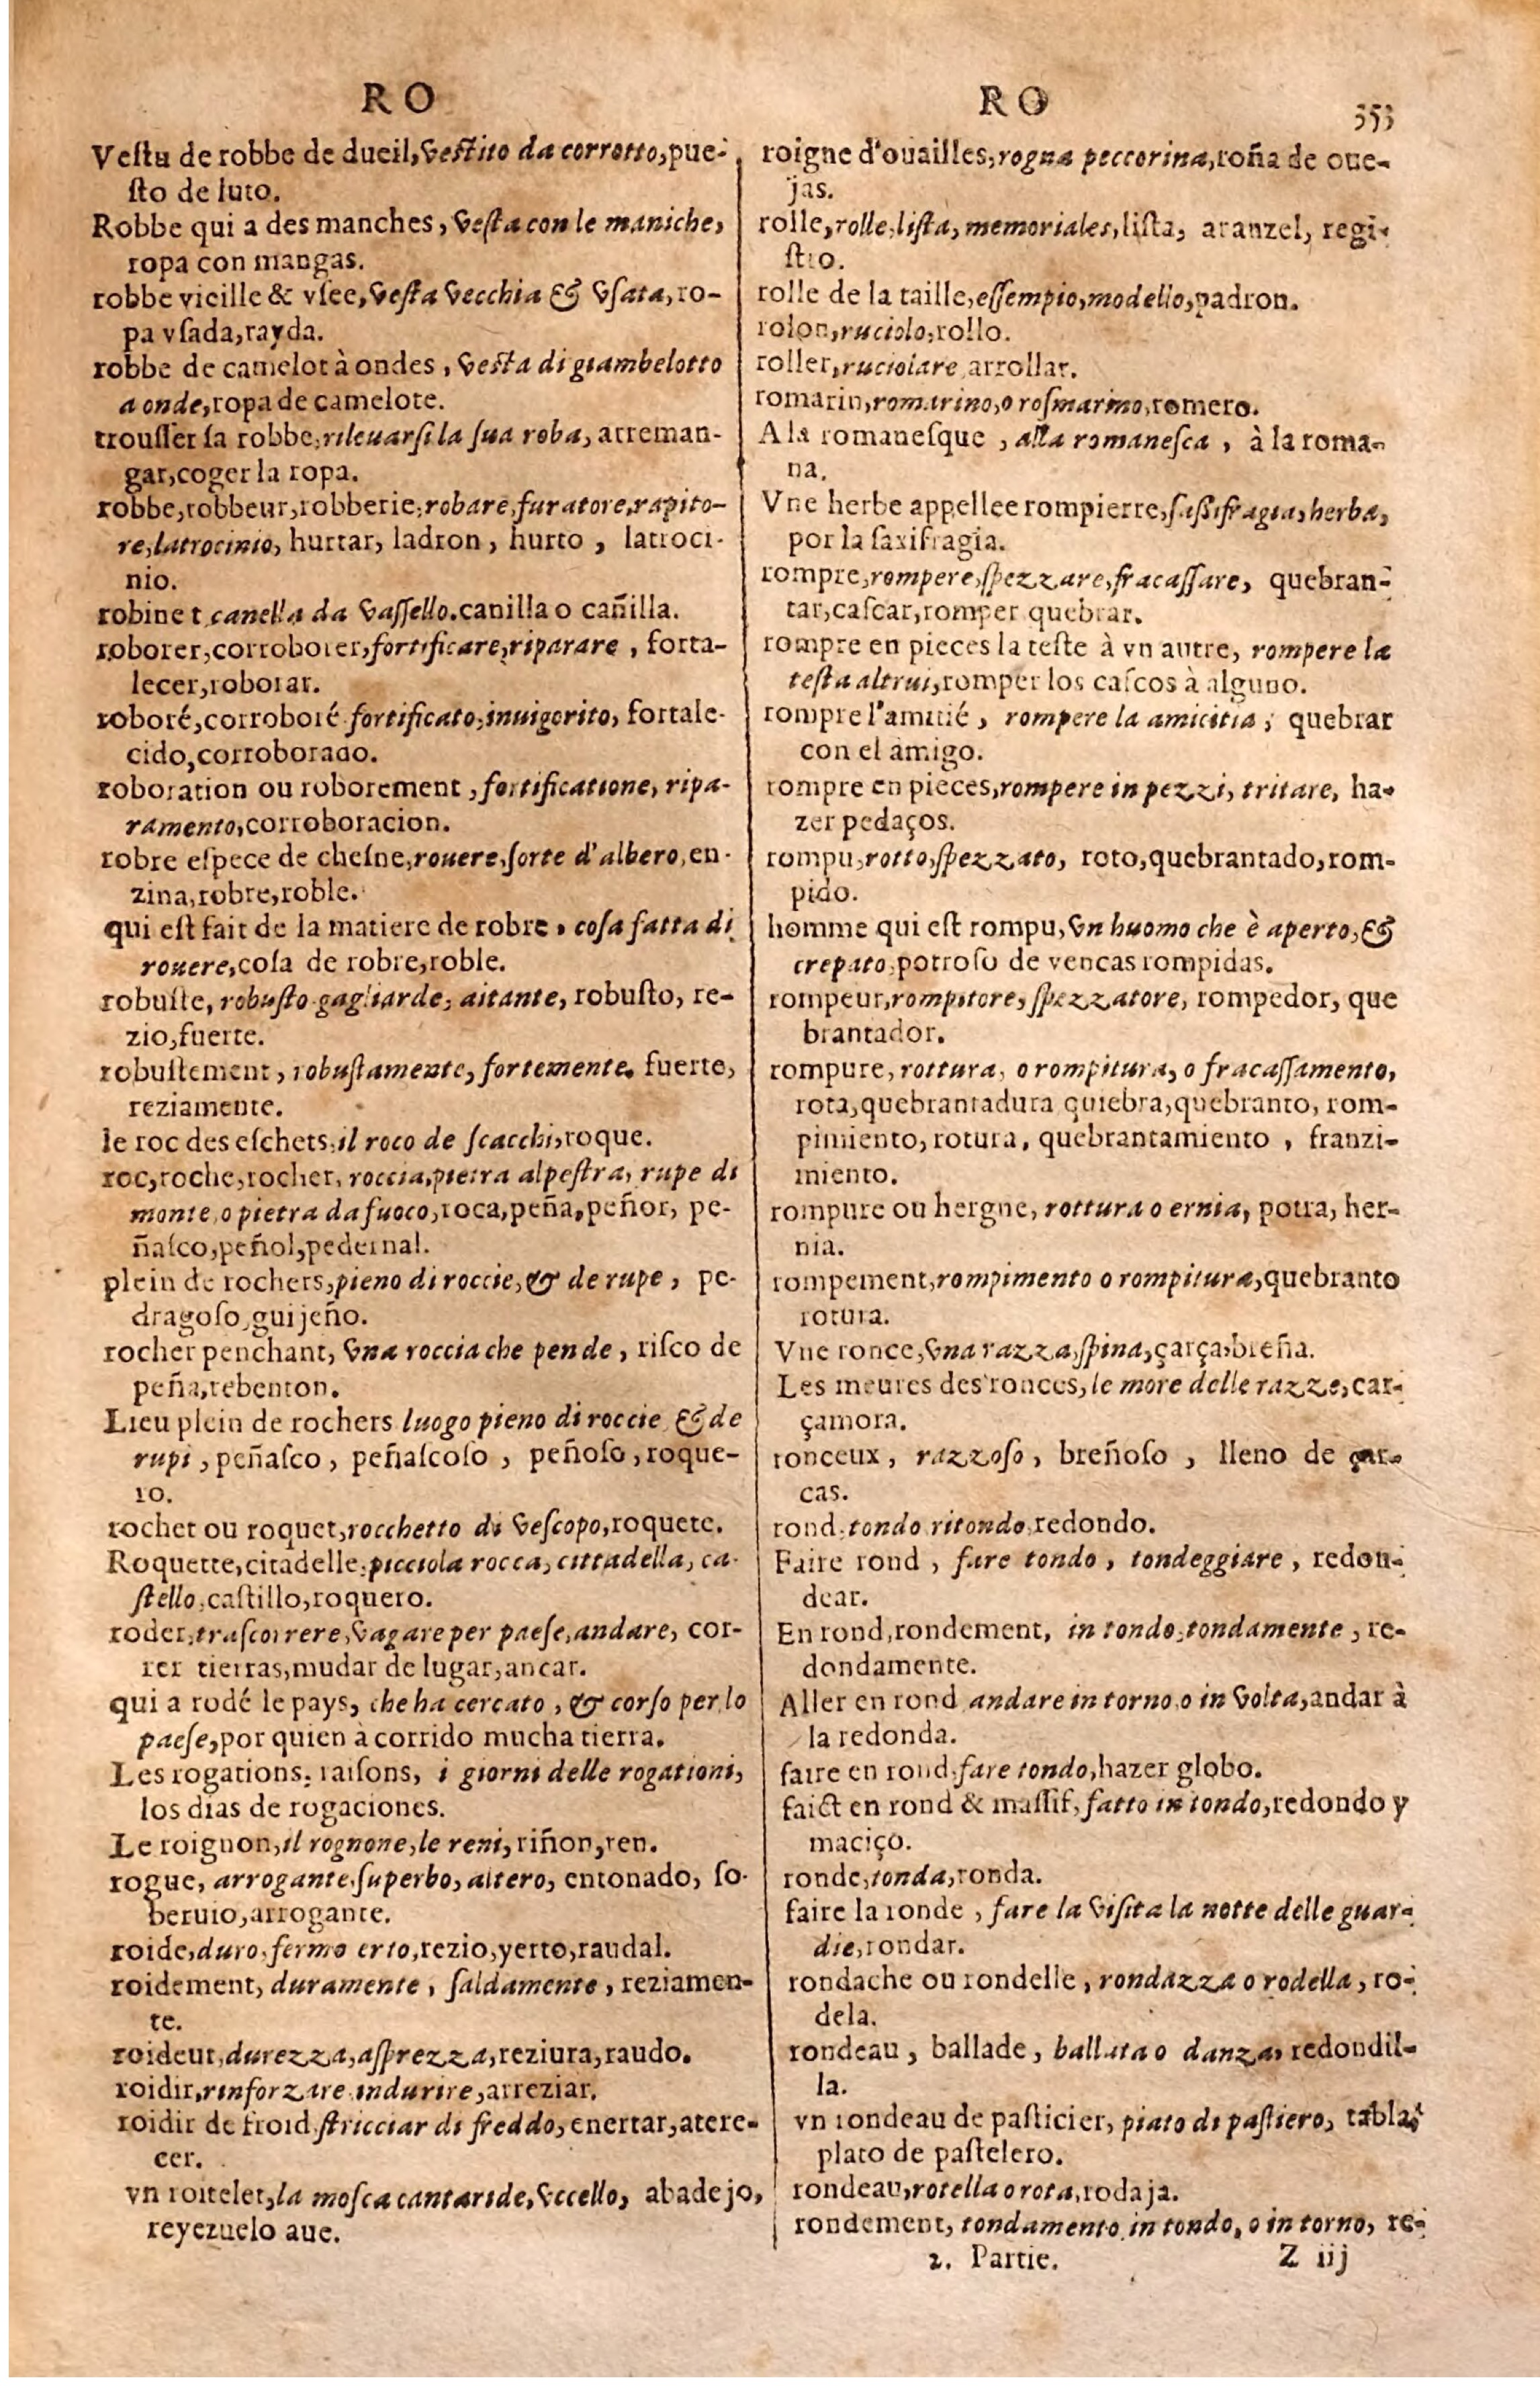 RO
Vestu de robbe de dueil, vestito da corrotto, pue-
sto de luto.
Robbe qui a des manches, vesta con le maniche,
ropa con mangas.
robbe vieille & vsee, vesta vecchia & vsata, ro-
pa vsada, rayda.
robbe de camelot à ondes, vesta di giambelotto
a onde, ropa de camelote.
trousser sa robbe, rileuarsi la sua roba, arreman-
gar, coger la ropa.
robbe, robbeur, robberie, robare, furatore, rapito-
re, latrocinio, hurtar, ladron, hurto, latroci-
nio.
robinet canella da vassello. canilla o cañilla.
roborer, corroborer, fortificare, riparare, forta-
lecer, roborar.
roboré, corroboré fortificato, inuigorito, fortale-
cido, corroborado.
roboration ou roborement, fortificatione, ripa-
ramento, corroboracion.
robre espece de chesne, rouere, sorte d'albero, en-
zina, robre, roble.
qui est fait de la matiere de robre, cosa fatta di
rouere, cosa de robre, roble.
robuste, robusto gagliarde, aitante, robusto, re-
zio, fuerte.
robustement, robustamente, fortemente. fuerte,
reziamente.
le roc des eschets, il roco de scacchi, roque.
roc, roche, rocher, roccia, pietra alpestra, rupe di
monte, o pietra da fuoco, roca, peña, peñor, pe-
ñasco, peñol, pedernal.
plein de rochers, pieno di roccie, & de rupe, pe-
dragoso, guijeño.
rocher penchant, vna roccia che pende, risco de
peña, rebenton.
Lieu plein de rochers luogo pieno di roccie & de
rupi, peñasco, peñascoso, peñoso, roque-
ro.
rochet ou roquet, rocchetto di vescopo, roquete.
Roquette, citadelle, picciola rocca, cittadella, ca-
stello, castillo, roquero.
roder, trascorrere, vagare per paese, andare, cor-
rer tierras, mudar de lugar, ancar.
qui a rodé le pays, che ha cercato, & corso per lo
paese, por quien à corrido mucha tierra.
Les rogations, raisons, i giorni delle rogationi,
los dias de rogaciones.
Le roignon, il rognone, le reni, riñon, ren.
rogue, arrogante, superbo, altero, entonado, so-
beruio, arrogante.
roide, duro, fermo erto, rezio, yerto, raudal.
roidement, duramente, saldamente, reziamen-
te.
roideur, durezza, asprezza, reziura, raudo.
roidir, rinforzare indurire, arreziar.
roidir de froid stricciar di freddo, enertar, atere-
cer.
vn roitelet, la mosca cantaride, vccello, abadejo,
reyezuelo aue.
RO
353
roigne d'ouailles, rogna peccorina, roña de oue-
jas.
rolle, rolle, lista, memoriales, lista, aranzel, regi-
stro.
rolle de la taille, essempio, modello, padron.
rolon, ruciolo, rollo.
roller, ruciolare arrollar.
romarin, romarino, o rosmarino, romero.
A la romanesque, alla romanesca, à la roma-
na.
Vne herbe appellee rompierre, sassifragia, herba,
por la saxifragia.
rompre, rompere, spezzare, fracassare, quebran-
tar, cascar, romper quebrar.
rompre en pieces la teste à vn autre, rompere la
testa altrui, romper los cascos à alguno.
rompre l'amitié, rompere la amicitia, quebrar
con el amigo.
rompre en pieces, rompere in pezzi, tritare, ha-
zer pedaços.
rompu, rotto, spezzato, roto, quebrantado, rom-
pido.
homme qui est rompu, vn huomo che è aperto, &
crepato, potroso de vencas rompidas.
rompeur, rompitore, spezzatore, rompedor, que
brantador.
rompure, rottura, o rompitura, o fracassamento,
rota, quebrantadura quiebra, quebranto, rom-
pimiento, rotura, quebrantamiento, franzi-
miento.
rompure ou hergne, rottura o ernia, potra, her-
nia.
rompement, rompimento o rompitura, quebranto
rotura.
Vne ronce, vna razza, spina, çarça, breña.
Les meures des ronces, le more delle razze, car-
çamora.
ronceux, razzoso, breñoso, lleno de çar-
cas.
rond, tondo ritondo, redondo.
Faire rond, fare tondo, tondeggiare, redon-
dear.
En rond, rondement, in tondo, tondamente, re-
dondamente.
Aller en rond andare in torno, o in volta, andar à
la redonda.
faire en rond, fare tondo, hazer globo.
faict en rond & massif, fatto in tondo, redondo y
maciço.
ronde, tonda, ronda.
faire la ronde, fare la visita la notte delle guar-
die, rondar.
rondache ou rondelle, rondazza o rodella, ro-
dela.
rondeau, ballade, ballata o danza, redondil-
la.
vn rondeau de pasticier, piato di pastiero, tabla,
plato de pastelero.
rondeau, rotella o rota, rodaja.
rondement, tondamento in tondo, o in torno, re-
2. Partie. Z iij